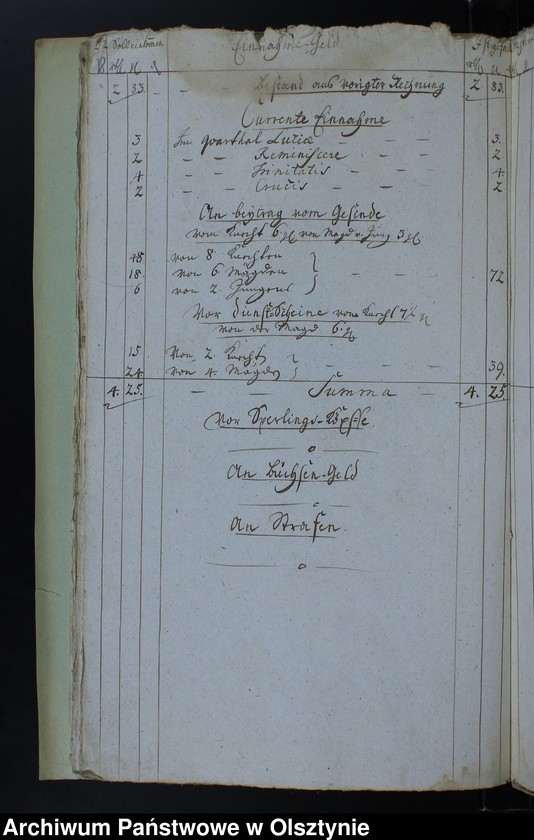 Soll einkommen Einnahme-Geld
rtl gl rtl gl
2 83 — — Bestand aus voriger Rechnung 2 83.
Currente Einnahme
3 Im Quarthal Luciæ — — 3.
2 — — Reminiscere — — 2
4 — — Trinitatis — — 4.
2 — — Crucis — — 2
An beytrag vom Gesinde
vom Knecht 6 gl von Magd u. Jung 3 gl.
48 von 8. Knechten
18. von 6 Mägden — — — 72
6 von 2. Jungens
Vor Dienst-Scheine vom Knecht 7½
von der Magd 6. gl
15 von 2. Knecht
24 von 4. Mägden — — — 39.
4. 25. — — Summa — 4. 25
Vor Sperlings-Köpffe
o
An Büchsen-Geld
o
An Strafen.
o
Archiwum Państwowe w Olsztynie